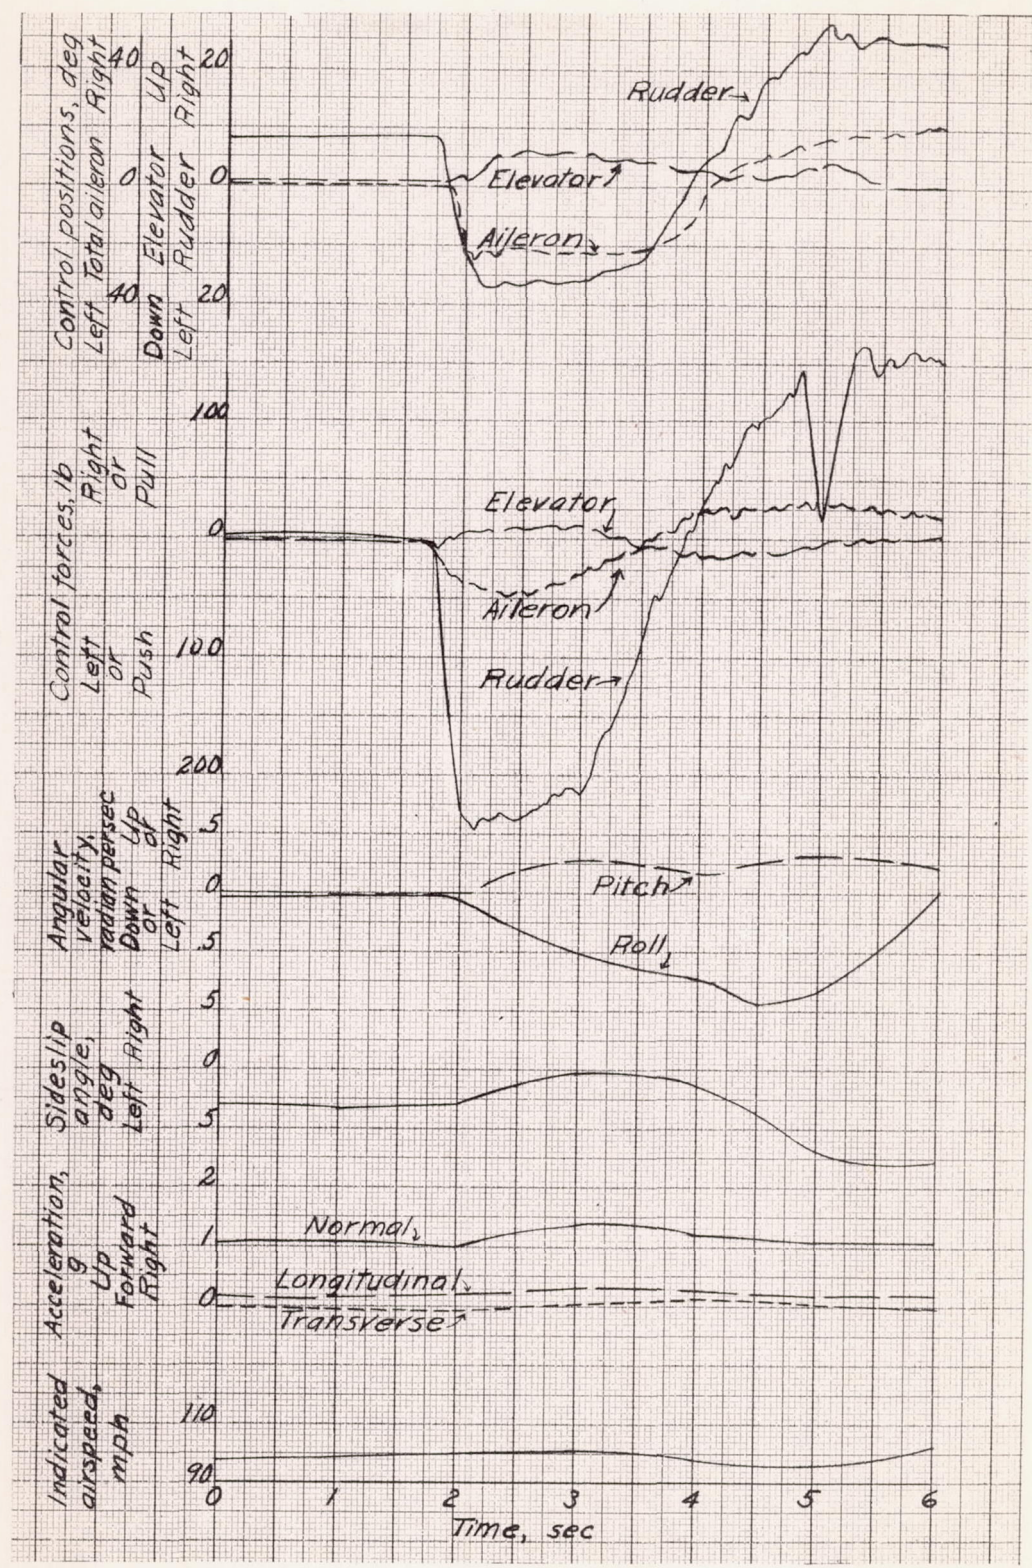 Control positions, deg
Left Total aileron Right
40
0
40
Down Elevator Up
Left Rudder Right
20
0
20
Rudder
Elevator
Aileron
Control forces, lb
Left Right
or or
Push Pull
100
0
100
200
Elevator
Aileron
Rudder
Angular
velocity,
radian per sec
Down Up
or or
Left Right
.5
0
.5
Pitch
Roll
Sideslip
angle,
deg
Left Right
5
0
5
Acceleration,
g
Up
Forward
Right
2
1
0
Normal
Longitudinal
Transverse
Indicated
airspeed,
mph
110
90
0 1 2 3 4 5 6
Time, sec